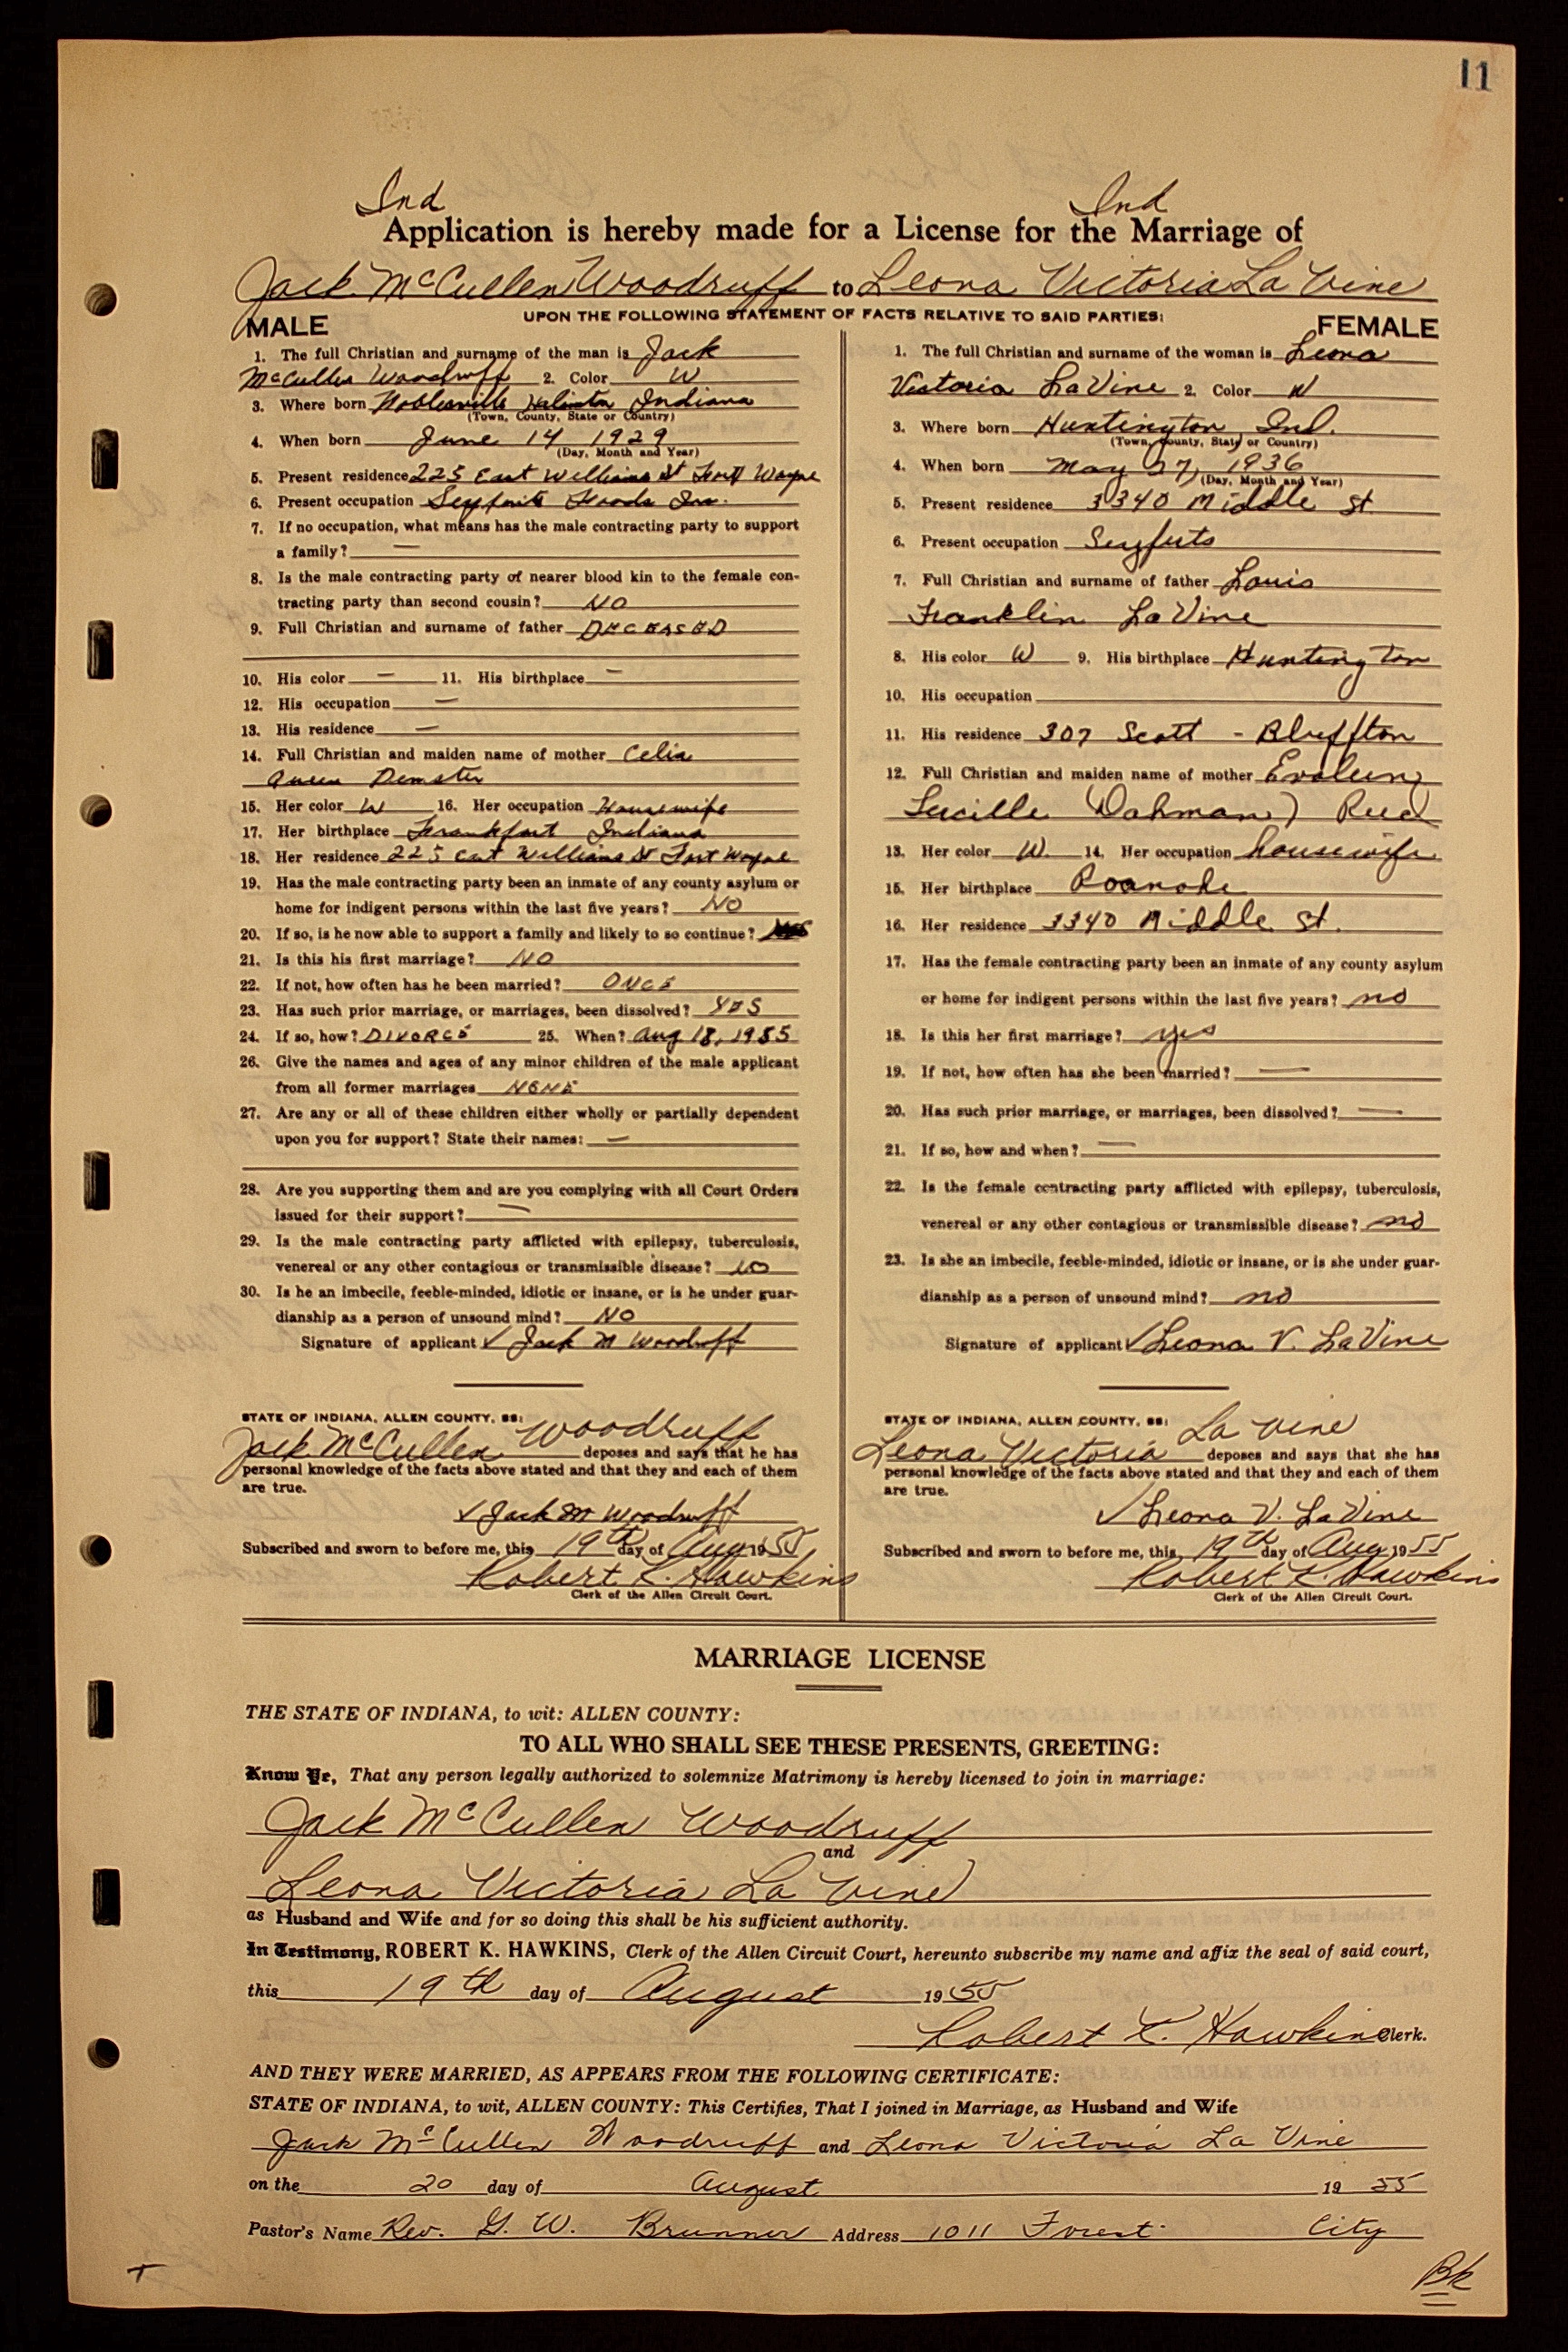 11
Ind Ind
Application is hereby made for a License for the Marriage of
Jack McCullen Woodruff to Leona Victoria La Vine
UPON THE FOLLOWING STATEMENT OF FACTS RELATIVE TO SAID PARTIES:
MALE
1. The full Christian and surname of the man is Jack
McCullen Woodruff 2. Color W
3. Where born Noblesville Indiana
(Town, County, State or Country)
4. When born June 14 1929
(Day, Month and Year)
5. Present residence 225 East Williams St Fort Wayne
6. Present occupation Seyferts Foods Inc.
7. If no occupation, what means has the male contracting party to support
a family? —
8. Is the male contracting party of nearer blood kin to the female con-
tracting party than second cousin? NO
9. Full Christian and surname of father DECEASED
10. His color — 11. His birthplace —
12. His occupation —
13. His residence —
14. Full Christian and maiden name of mother Celia
Queen Demster
15. Her color W 16. Her occupation Housewife
17. Her birthplace Frankfort Indiana
18. Her residence 225 East Williams St Fort Wayne
19. Has the male contracting party been an inmate of any county asylum or
home for indigent persons within the last five years? NO
20. If so, is he now able to support a family and likely to so continue?
21. Is this his first marriage? NO
22. If not, how often has he been married? ONCE
23. Has such prior marriage, or marriages, been dissolved? YES
24. If so, how? DIVORCE 25. When? Aug 18, 1955
26. Give the names and ages of any minor children of the male applicant
from all former marriages NONE
27. Are any or all of these children either wholly or partially dependent
upon you for support? State their names: —
28. Are you supporting them and are you complying with all Court Orders
issued for their support? —
29. Is the male contracting party afflicted with epilepsy, tuberculosis,
venereal or any other contagious or transmissible disease? NO
30. Is he an imbecile, feeble-minded, idiotic or insane, or is he under guar-
dianship as a person of unsound mind? NO
Signature of applicant ✓ Jack M Woodruff
STATE OF INDIANA, ALLEN COUNTY, SS: Woodruff
Jack McCullen deposes and says that he has
personal knowledge of the facts above stated and that they and each of them
are true.
✓ Jack M Woodruff
Subscribed and sworn to before me, this 19th day of Aug 1955
Robert K. Hawkins
Clerk of the Allen Circuit Court.
FEMALE
1. The full Christian and surname of the woman is Leona
Victoria LaVine 2. Color W
3. Where born Huntington, Ind.
(Town, County, State or Country)
4. When born May 27, 1936
(Day, Month and Year)
5. Present residence 3340 Middle St
6. Present occupation Seyferts
7. Full Christian and surname of father Louis
Franklin LaVine
8. His color W 9. His birthplace Huntington
10. His occupation
11. His residence 307 Scott - Bluffton
12. Full Christian and maiden name of mother Evaleen
Lucille (Dahman) Reed
13. Her color W. 14. Her occupation housewife
15. Her birthplace Roanoke
16. Her residence 3340 Middle St.
17. Has the female contracting party been an inmate of any county asylum
or home for indigent persons within the last five years? no
18. Is this her first marriage? yes
19. If not, how often has she been married? —
20. Has such prior marriage, or marriages, been dissolved? —
21. If so, how and when? —
22. Is the female contracting party afflicted with epilepsy, tuberculosis,
venereal or any other contagious or transmissible disease? no
23. Is she an imbecile, feeble-minded, idiotic or insane, or is she under guar-
dianship as a person of unsound mind? no
Signature of applicant ✓ Leona V. LaVine
STATE OF INDIANA, ALLEN COUNTY, SS: La Vine
Leona Victoria deposes and says that she has
personal knowledge of the facts above stated and that they and each of them
are true.
✓ Leona V. LaVine
Subscribed and sworn to before me, this 19th day of Aug 1955
Robert K. Hawkins
Clerk of the Allen Circuit Court.
MARRIAGE LICENSE
THE STATE OF INDIANA, to wit: ALLEN COUNTY:
TO ALL WHO SHALL SEE THESE PRESENTS, GREETING:
Know Ye, That any person legally authorized to solemnize Matrimony is hereby licensed to join in marriage:
Jack McCullen Woodruff
and
Leona Victoria La Vine
as Husband and Wife and for so doing this shall be his sufficient authority.
In Testimony, ROBERT K. HAWKINS, Clerk of the Allen Circuit Court, hereunto subscribe my name and affix the seal of said court,
this 19th day of August 1955
Robert K. Hawkins Clerk.
AND THEY WERE MARRIED, AS APPEARS FROM THE FOLLOWING CERTIFICATE:
STATE OF INDIANA, to wit, ALLEN COUNTY: This Certifies, That I joined in Marriage, as Husband and Wife
Jack McCullen Woodruff and Leona Victoria La Vine
on the 20 day of August 1955
Pastor's Name Rev. G. W. Brunner Address 1011 Forest City
Bk